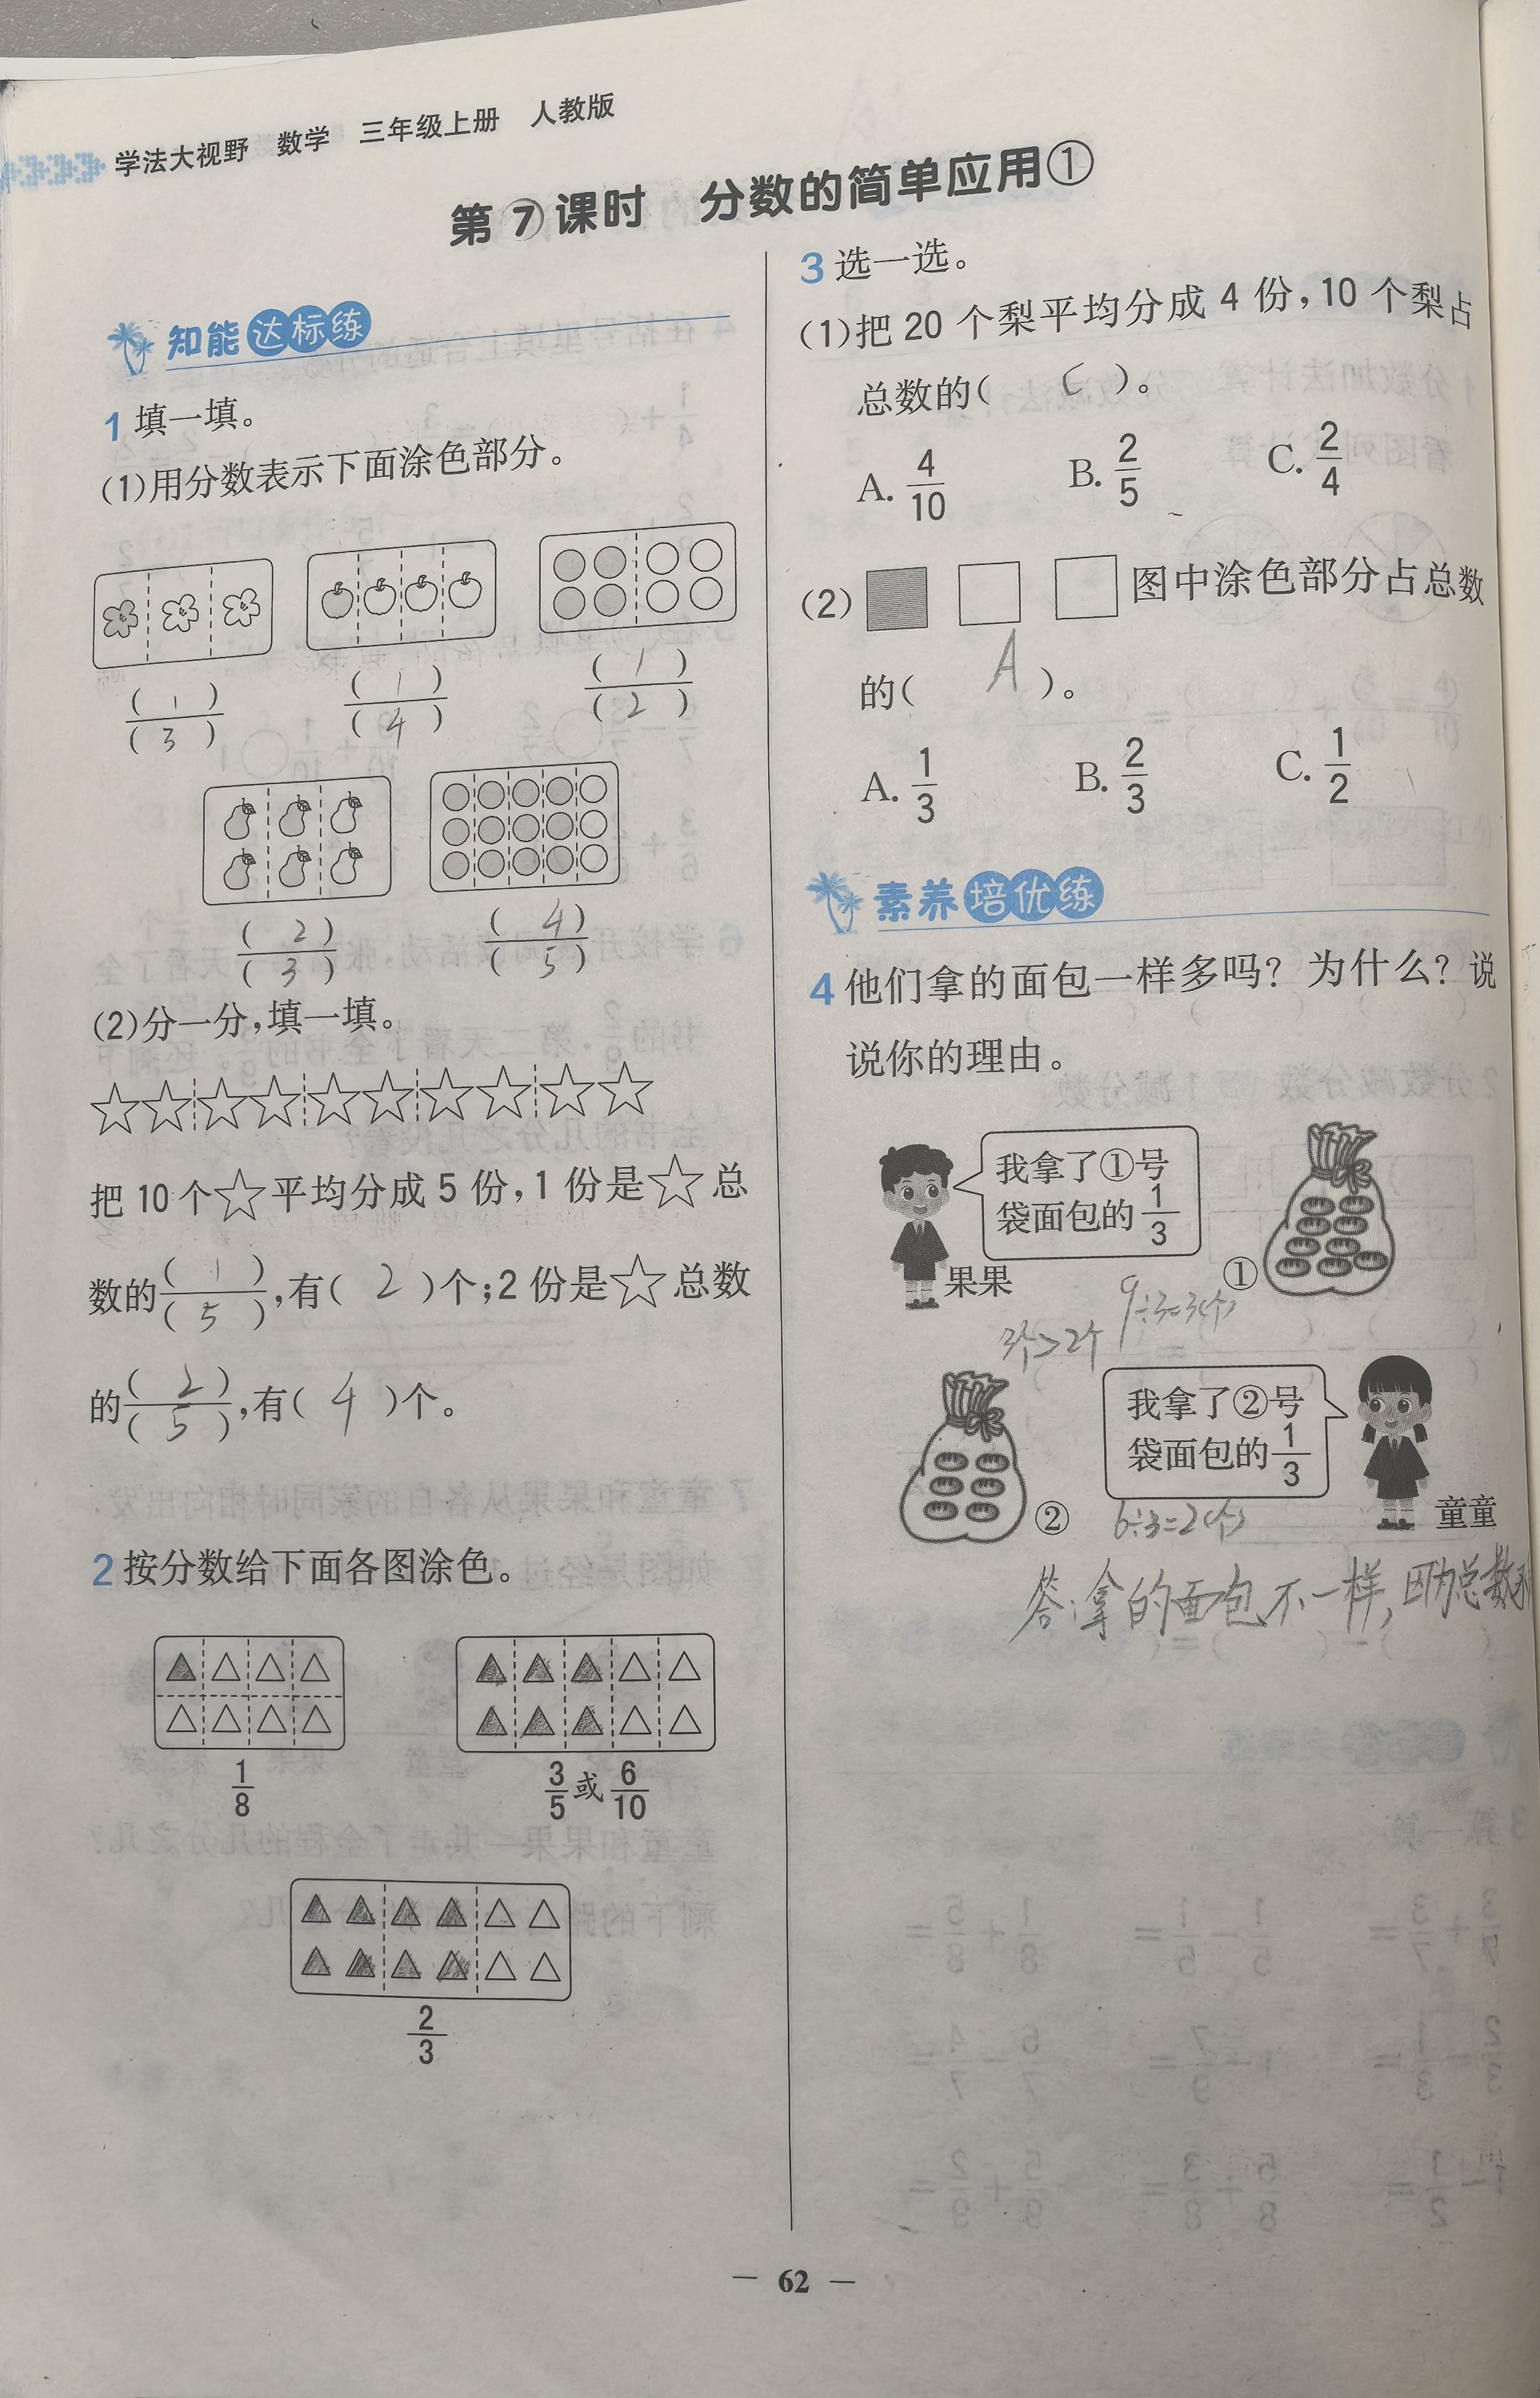 学法大视野 数学 三年级上册 人教版
第7课时 分数的简单应用①
知能达标练
1 填一填。
(1)用分数表示下面涂色部分。
(1)/(3) (1)/(4) (1)/(2)
(2)/(3) (4)/(5)
(2)分一分,填一填。
把10个☆平均分成5份,1份是☆总
数的(1)/(5),有(2)个;2份是☆总数
的(2)/(5),有(4)个。
2 按分数给下面各图涂色。
1/8 3/5或6/10
2/3
3 选一选。
(1)把20个梨平均分成4份,10个梨占
总数的( C )。
A. 4/10 B. 2/5 C. 2/4
(2) 图中涂色部分占总数
的( A )。
A. 1/3 B. 2/3 C. 1/2
素养培优练
4 他们拿的面包一样多吗?为什么?说
说你的理由。
我拿了①号
袋面包的1/3
果果 ①
9÷3=3(个)
3个>2个
我拿了②号
袋面包的1/3
② 童童
6÷3=2(个)
答:拿的面包不一样,因为总数
— 62 —